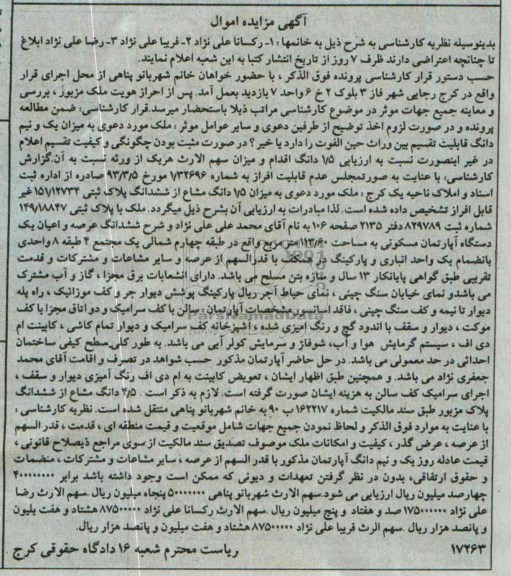 آگهی مزایده اموال
بدینوسیله نظریه کارشناسی به شرح ذیل به خانمها : ۱- رکسانا علی نژاد ۲- فریبا علی نژاد ۳- رضا علی نژاد ابلاغ
تا چنانچه اعتراضی دارند ظرف ۷ روز از تاریخ انتشار کتبا به این شعبه اعلام نمایند.
حسب دستور قرار کارشناسی پرونده فوق الذکر ، با حضور خواهان خانم شهربانو پناهی از محل اجرای قرار
واقع در کرج رجایی شهر فاز ۳ بلوک ۲ خ ۶ واحد ۷ بازدید بعمل آمد. پس از احراز هویت ملک مزبور ، بررسی
و معاینه جمیع جهات موثر در موضوع کارشناسی مراتب ذیلا باستحضار میرسد.قرار کارشناسی: ضمن مطالعه
پرونده و در صورت لزوم اخذ توضیح از طرفین دعوی و سایر عوامل موثر : ملک مورد دعوی به میزان یک و نیم
دانگ قابلیت تقسیم بین وراث حین الفوت را دارد یا خیر ؟ در صورت مثبت بودن چگونگی و کیفیت تقسیم اعلام
در غیر اینصورت نسبت به ارزیابی ۱/۵ دانگ اقدام و میزان سهم الارث هریک از ورثه نسبت به آن.گزارش
کارشناسی: با عنایت به صورتمجلس عدم قابلیت افراز به شماره ۷۳۲۶۹۶ مورخ ۹۳/۳/۵ صادره از اداره ثبت
اسناد و املاک ناحیه یک کرج ، ملک مورد دعوی به میزان ۱/۵ دانگ مشاع از ششدانگ پلاک ثبتی ۱۵۱/۱۲۷۳۴ غیر
قابل افراز تشخیص داده شده است. لذا مبادرات به ارزیابی آن بشرح ذیل میگردد. ملک با پلاک ثبتی ۱۴۹/۱۸۸۴۷
شماره ثبت ۸۲۹۷۸۹ دفتر ۲۱۳۵ صفحه ۱۰۶ به نام آقای محمد علی علی نژاد و شرح ششدانگ عرصه و اعیان یک
دستگاه آپارتمان مسکونی به مساحت ۱۱۲/۶۰ متر مربع واقع در طبقه چهارم شمالی یک مجتمع ۴ طبقه ۸ واحدی
بانضمام یک واحد انباری و پارکینگ در همکف با قدرالسهم از عرصه و سایر مشاعات و مشترکات و قدمت
تقریبی طبق گواهی پایانکار ۱۳ سال و سازه بتن مسلح می باشد. دارای انشعابات برق مجزا ، گاز و آب مشترک
می باشدو نمای خیابان سنگ چینی ، نمای حیاط آجر ریال پارکینگ پوشش دیوار جر و کف موزائیک ، راه پله
دیوار تا نیمه و کف سنگ چینی ، فاقد آسانسور.مشخصات آپارتمان : سالن با کف سرامیک و دو اتاق مجزا با کف
موکت ، دیوار و سقف با اندود گچ و رنگ امیزی شده ، آشپزخانه کف سرامیک و دیوار تمام کاشی ، کابینت ام
دی اف ، سیستم گرمایش هوا و آب، شوفاژ و سرمایش کولر آبی می باشد. به طور کلی سطح کیفی ساختمان
احداثی در حد معمولی می باشد. در حل حاضر آپارتمان مذکور حسب شواهد در تصرف و اقامت آقای محمد
جعفری نژاد می باشد. و همچنین طبق اظهار ایشان ، تعویض کابینت به ام دی اف رنگ آمیزی دیوار و سقف ،
اجرای سرامیک کف سالن به هزینه ایشان صورت گرفته است. لازم به ذکر است . ۴/۵ دانگ مشاع از ششدانگ
پلاک مزبور طبق سند مالکیت شماره ۱۶۲۲۱۷ ب ۹۰ به خانم شهربانو پناهی منتقل شده است. نظریه کارشناسی :
با عنایت به موارد فوق الذکر و لحاظ نمودن جمیع جهات شامل موقعیت و قیمت منطقه ای ، قدمت ، قدر السهم
از عرصه ، عرض گذر ، کیفیت و امکانات ملک موصوف تصدیق سند مالکیت از سوی مراجع ذیصلاح قانونی ،
قیمت عادله روز یک و نیم دانگ آپارتمان مذکور با قدر السهم از عرصه ، سایر مشاعات و مشترکات ، منضمات
و حقوق ارتفاقی، بدون در نظر گرفتن تعهدات و دیونی که ممکن است وجود داشته باشد برابر ۴۰۰۰۰۰۰۰۰
چهارصد میلیون ریال ارزیابی می شود.سهم الارث شهربانو پناهی ۵۰۰۰۰۰۰۰ پنجاه میلیون ریال .سهم الارث رضا
علی نژاد ۱۷۵۰۰۰۰۰۰ صد و هفتاد و پنج میلیون ریال .سهم الارث رکسانا علی نژاد ۸۷۵۰۰۰۰۰ هشتاد و هفت یلیون
و پانصد هزار ریال .سهم الرث فریبا علی نژاد ۸۷۵۰۰۰۰۰ هشتاد و هفت میلیون و پانصد هزار ریال.
۱۷۲۶۳ ریاست محترم شعبه ۱۶ دادگاه حقوقی کرج